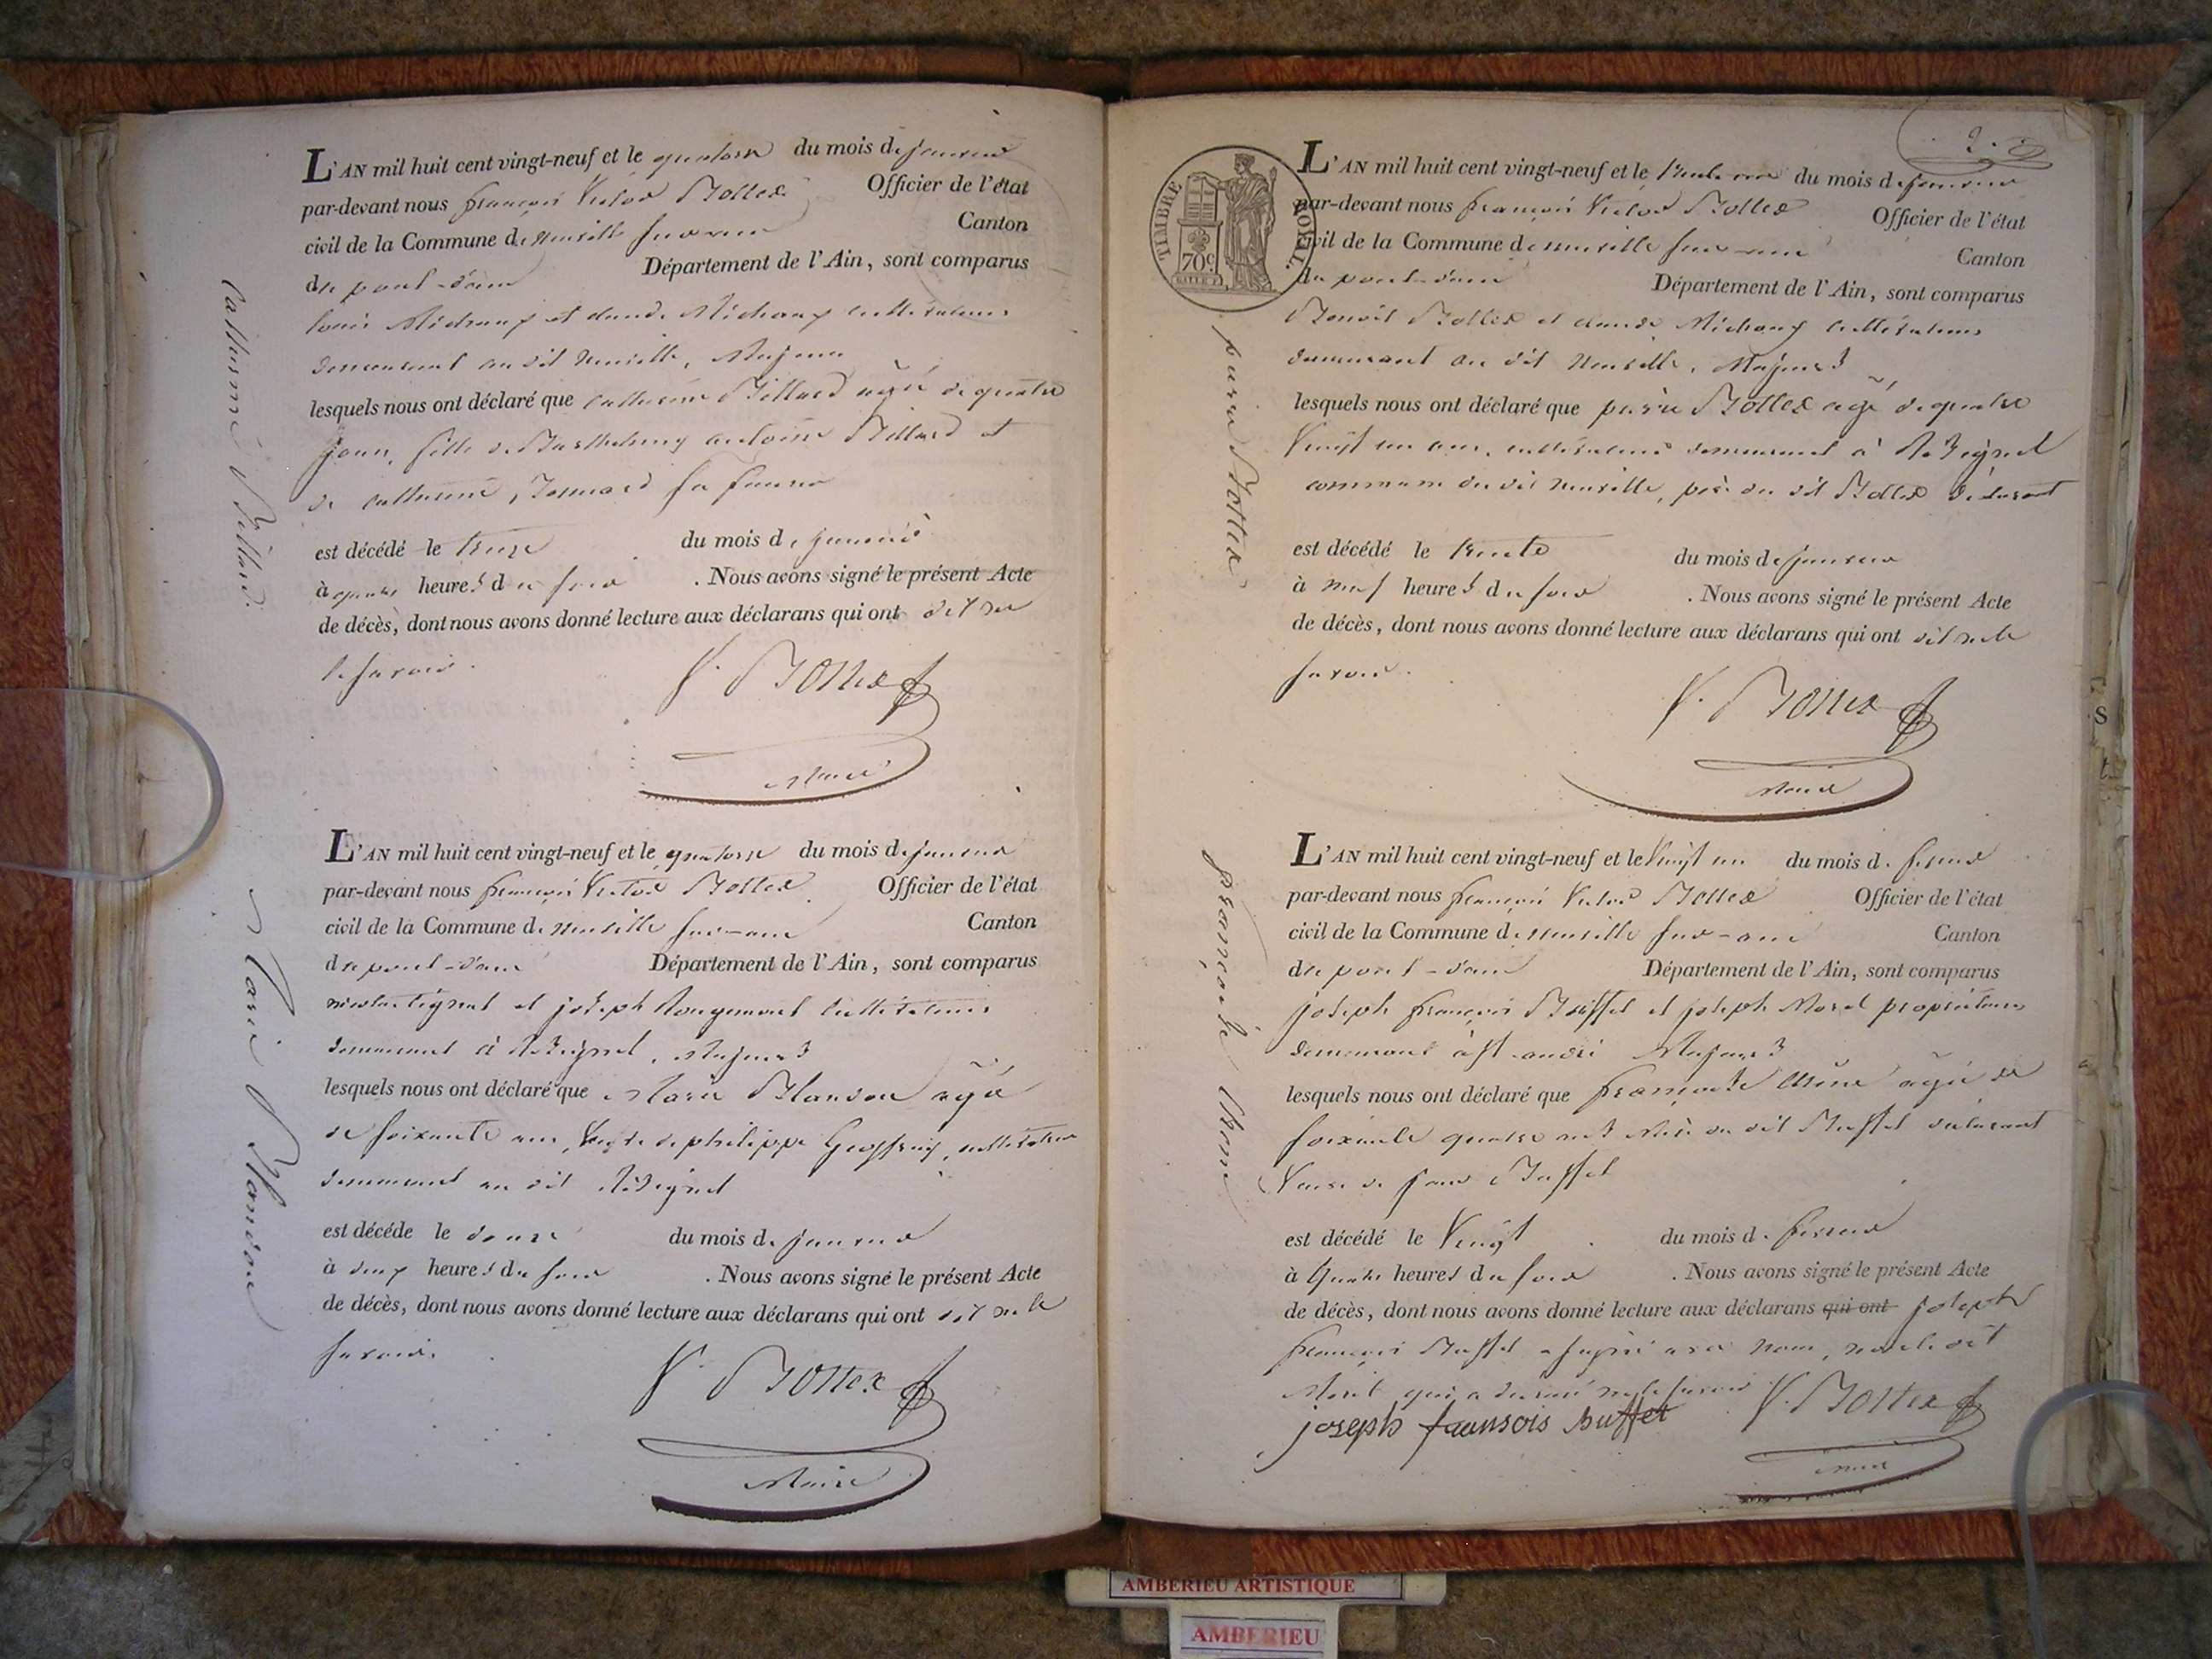 L'AN mil huit cent vingt-neuf et le quatorze du mois de janvier
par-devant nous françois Victor Bottex Officier de l'état
civil de la Commune de neuville sur ain Canton
de pont-d'ain Département de l'Ain, sont comparus
louis Michaux et claude Michaux cultivateurs
demeurant au dit neuville, Majeurs
lesquels nous ont déclaré que catherine Billard agée de quatre
jours, fille de Barthelemy antoine Billard et
de catherine sa femme
est décédé le treize du mois de janvier
à quatre heures du soir . Nous avons signé le présent Acte
de décès, dont nous avons donné lecture aux déclarans qui ont dit ne
le savoir.
V. Bottex
Maire
Catherine Billard.
L'AN mil huit cent vingt-neuf et le quatorze du mois de janvier
par-devant nous françois Victor Bottex Officier de l'état
civil de la Commune de neuville sur-ain Canton
de pont-d'ain Département de l'Ain, sont comparus
et joseph Rougemont cultivateurs
demeurant à Majeurs
lesquels nous ont déclaré que Marie Blandon agée
de soixante ans, Veuve de philippe Geoffray, cultivateur
demeurant au dit
est décéde le douze du mois de janvier
à deux heures du soir . Nous avons signé le présent Acte
de décès, dont nous avons donné lecture aux déclarans qui ont dit ne le
savoir.
V. Bottex
Maire
Marie Blandon
2.
TIMBRE ROYAL.
70c
L'AN mil huit cent vingt-neuf et le trente un du mois de janvier
par-devant nous françois Victor Bottex Officier de l'état
civil de la Commune de neuville sur-ain Canton
de pont-d'ain Département de l'Ain, sont comparus
Benoit Bottex et claude Michaux cultivateurs
demeurant au dit neuville, Majeurs
lesquels nous ont déclaré que pierre Bottex agé de quatre
Vingt un ans, cultivateur demeurant à
commune du dit neuville, père du dit Bottex déclarant
est décédé le trente du mois de janvier
à neuf heures du soir . Nous avons signé le présent Acte
de décès, dont nous avons donné lecture aux déclarans qui ont dit ne le
savoir.
V. Bottex
Maire
pierre Bottex
L'AN mil huit cent vingt-neuf et le Vingt un du mois de fevrier
par-devant nous françois Victor Bottex Officier de l'état
civil de la Commune de neuville sur-ain Canton
de pont-d'ain Département de l'Ain, sont comparus
joseph françois Buffet et joseph Morel propriétaires
demeurant à st andré Majeurs
lesquels nous ont déclaré que françoise agée de
soixante quatre ans Mère du dit Buffet déclarant
Veuve de Buffet
est décédé le Vingt du mois de fevrier
à quatre heures du soir . Nous avons signé le présent Acte
de décès, dont nous avons donné lecture aux déclarans qui ont joseph
françois Buffet a signé avec nous, non le dit
Morel qui a déclaré ne le savoir
V. Bottex
joseph faunsois Buffet
maire
françoise
AMBERIEU ARTISTIQUE
AMBERIEU